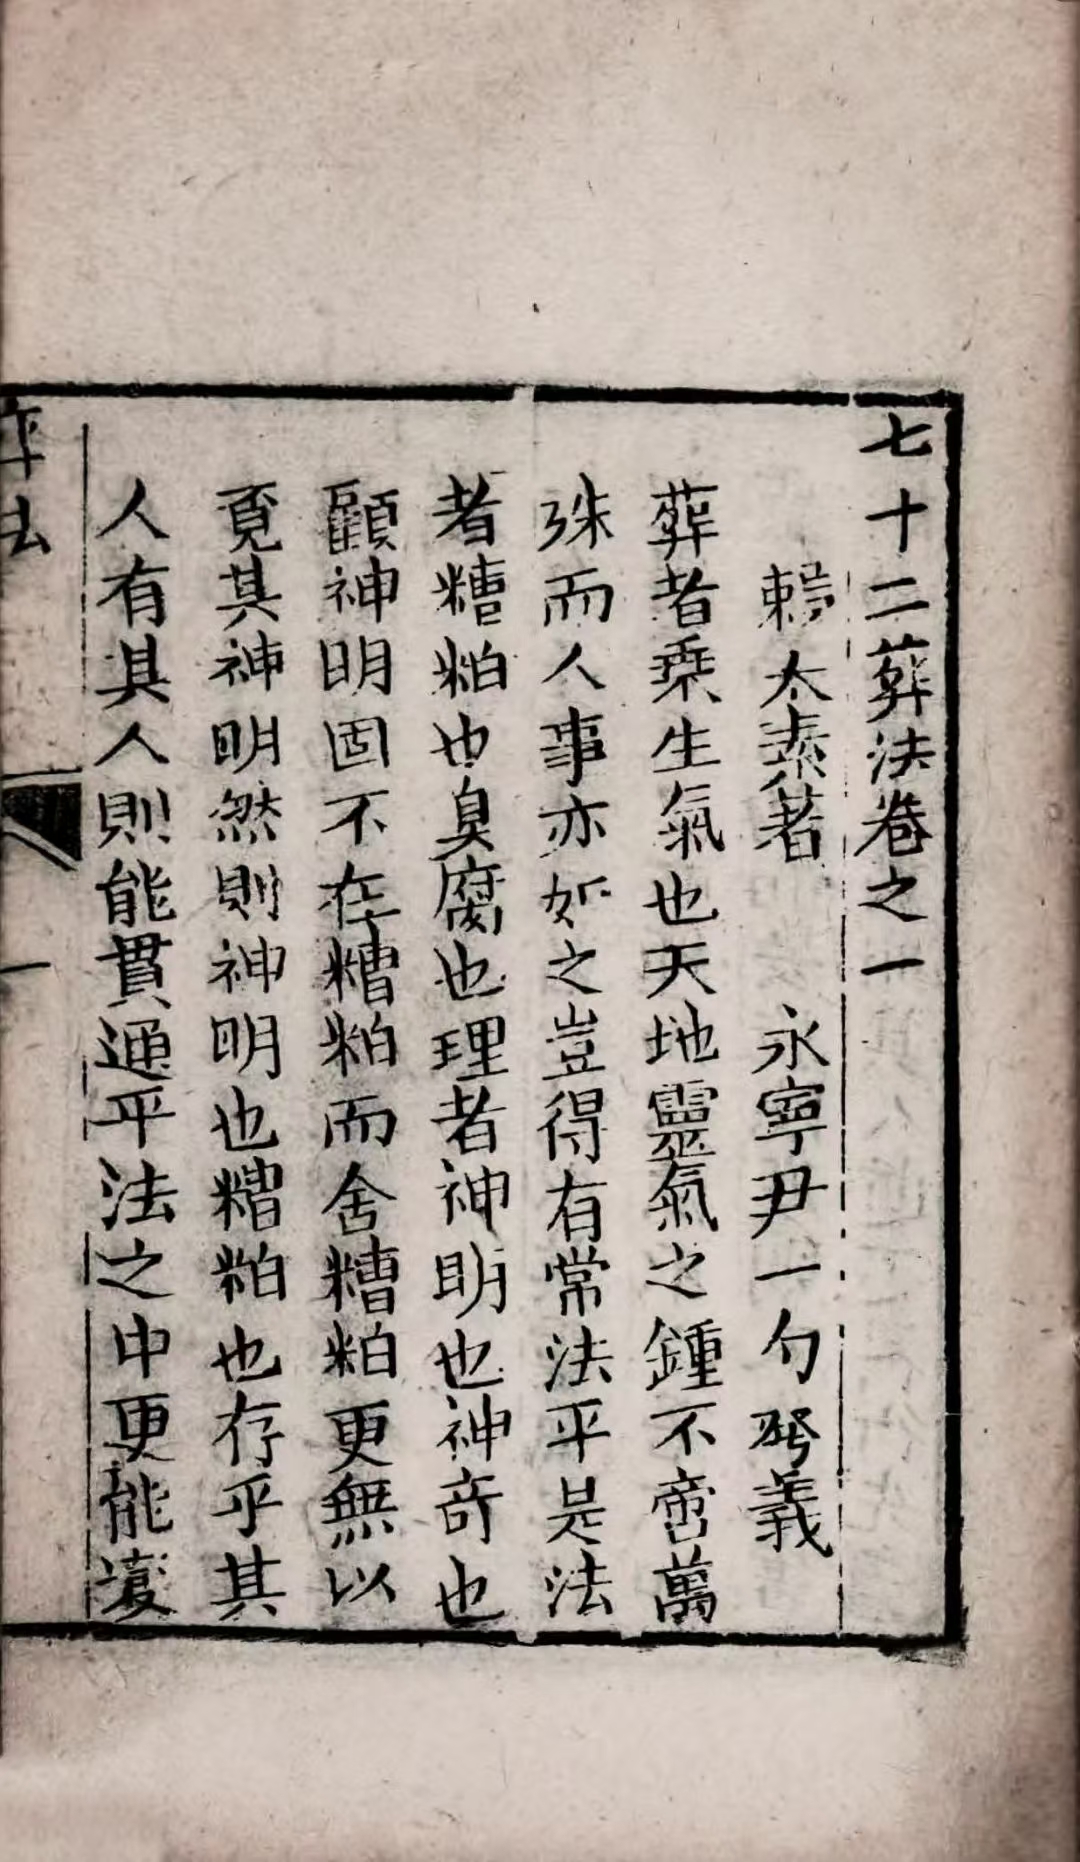 七十二葬法卷之一
賴太素著 永寧尹一勺發義
葬者乘生氣也天地靈氣之鍾不啻萬
殊而人事亦如之豈得有常法乎是法
者糟粕也臭腐也理者神明也神奇也
顧神明固不在糟粕而舍糟粕更無以
覓其神明然則神明也糟粕也存乎其
人有其人則能貫通乎法之中更能變
葬法
一